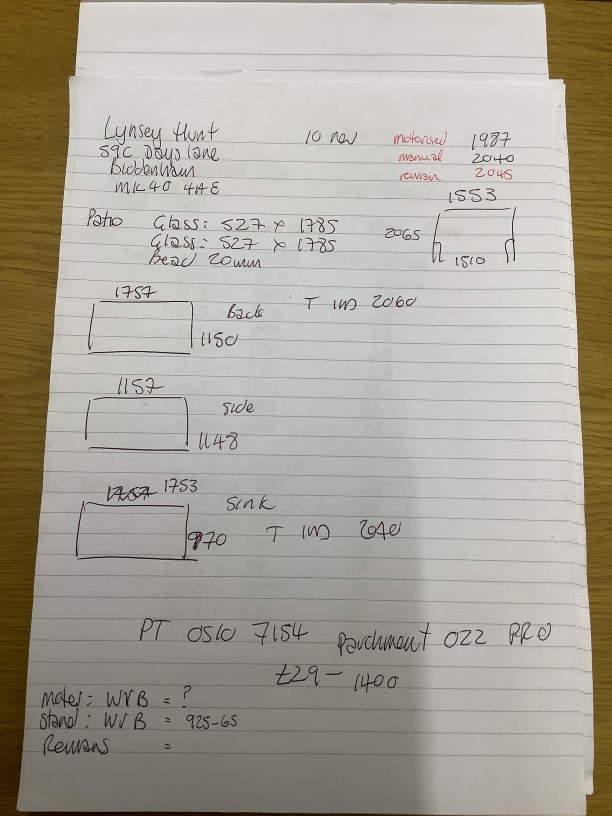 Lynsey Hunt
10 nov
motorised 1987
59C Days lane
manual 2040
Biddenham
reman 2045
MK40 4AE
1553
Patio Glass: 527 x 1785
2065
Glass: 527 x 1785
1510
Bead 20mm
1757
Back
T IND 2060
1150
1157
side
1148
1757 1753
Sink
970
T IND 2040
PT OSLO 7154 Parchment 022 PRO
£29- 1400
Moter: WVB = ?
Stand: WVB = 925-65
Remans =